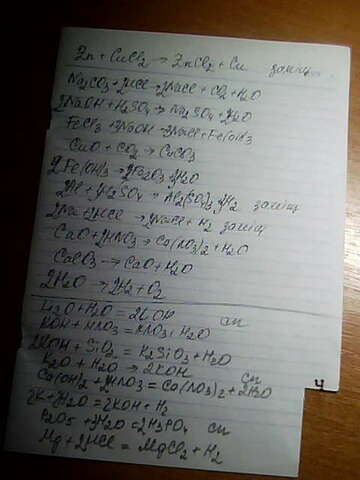 Zn + CuCl2 → ZnCl2 + Cu заміщ
Na2CO3 + 2HCl → 2NaCl + CO2 + H2O
2NaOH + H2SO4 → Na2SO4 + 2H2O
FeCl3 + 3NaOH → 3NaCl + Fe(OH)3
CaO + CO2 → CaCO3
2Fe(OH)3 → Fe2O3 + 3H2O
2Al + 3H2SO4 → Al2(SO4)3 + 3H2 заміщ
2Na + 2HCl → 2NaCl + H2 заміщ
CaO + 2HNO3 → Ca(NO3)2 + H2O
CaCO3 → CaO + H2O
2H2O → 2H2 + O2
+ H2O = 2KOH сп
KOH + HNO3 = KNO3 + H2O
2KOH + SiO2 = K2SiO3 + H2O
K2O + H2O → 2KOH сп
Ca(OH)2 + 2HNO3 = Ca(NO3)2 + 2H2O
2K + 2H2O = 2KOH + H2
P2O5 + 3H2O = 2H3PO4 сп
Mg + 2HCl = MgCl2 + H2
ч